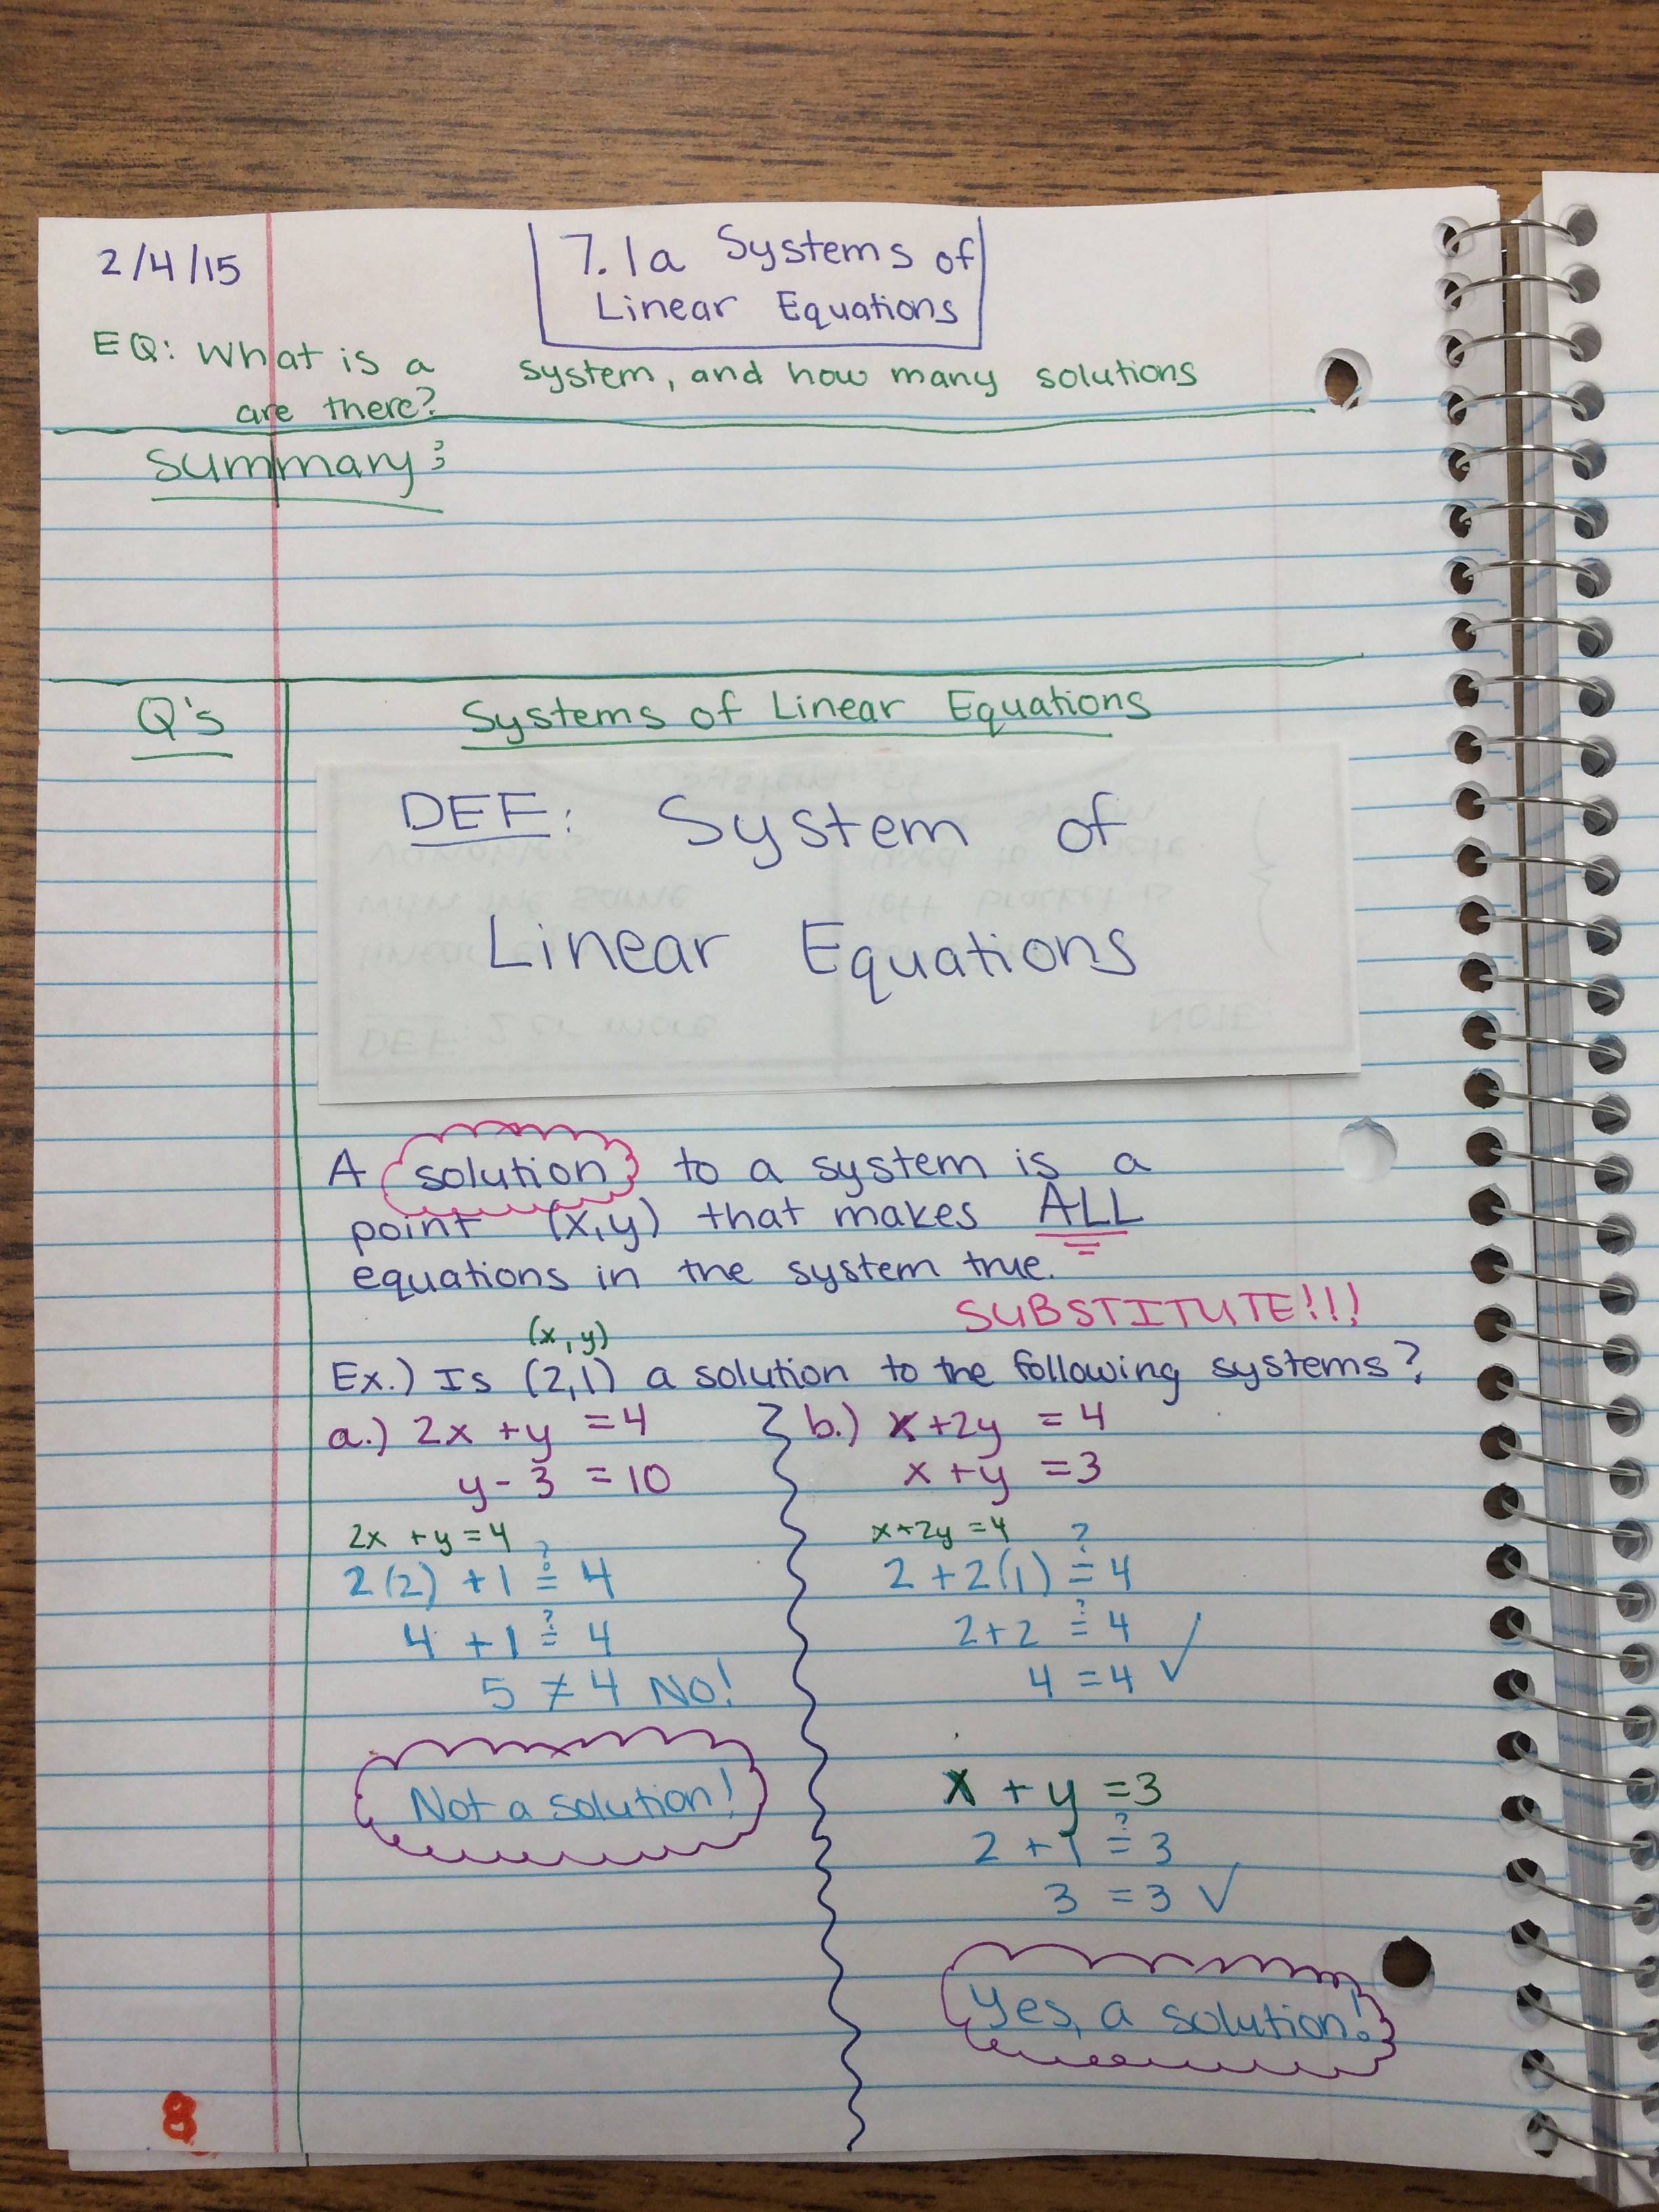 2/4/15
7.1a Systems of
Linear Equations
EQ: What is a system, and how many solutions
are there?
Summary:
Q's
Systems of Linear Equations
DEF: System of
Linear Equations
A solution to a system is a
point (x,y) that makes ALL
equations in the system true.
SUBSTITUTE!!!
(x,y)
Ex.) Is (2,1) a solution to the following systems?
a.) 2x + y = 4
y - 3 = 10
2x + y = 4
2(2) + 1 ≟ 4
4 + 1 ≟ 4
5 ≠ 4 NO!
Not a solution!
b.) x + 2y = 4
x + y = 3
x + 2y = 4
2 + 2(1) ≟ 4
2 + 2 ≟ 4
4 = 4 ✓
x + y = 3
2 + 1 ≟ 3
3 = 3 ✓
Yes, a solution!
8